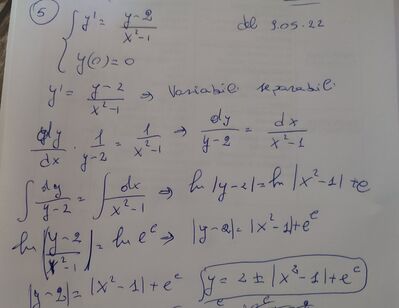 5 { y' = y-2 / x²-1   del 9.05.22
y(0) = 0
y' = y-2 / x²-1 ⇒ Variabili separabili
dy/dx · 1/y-2 = 1/x²-1 ⇒ dy/y-2 = dx/x²-1
∫ dy/y-2 = ∫ dx/x²-1 ⇒ ln |y-2| = ln |x²-1| + c
ln | y-2 / x²-1 | = ln e^c ⇒ |y-2| = |x²-1| + e^c
|y-2| = |x²-1| + e^c   y = 2 ± |x²-1| + e^c